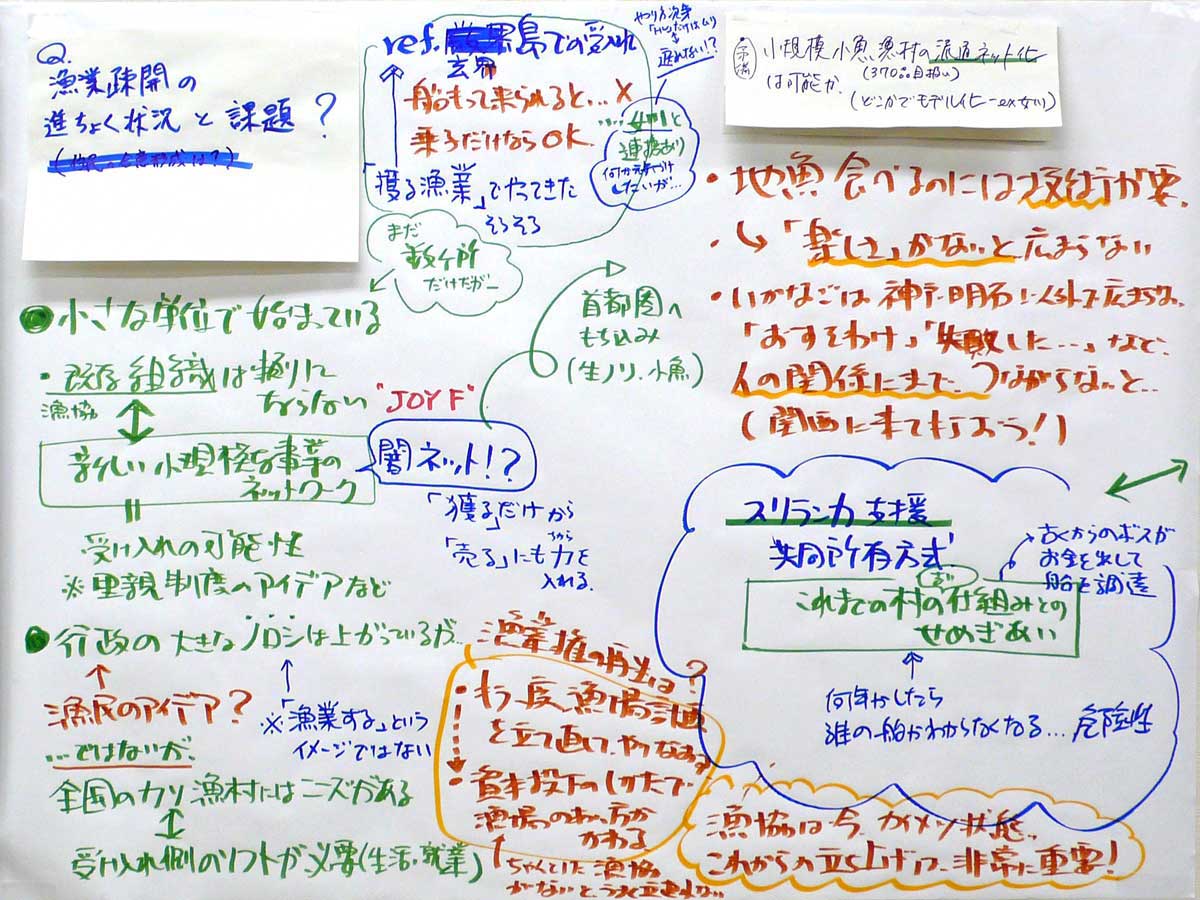 Q.
漁業疎開の
進ちょく状況と課題？
ref. 玄界島での受入れ
船もって来られると… ×
乗るだけならOK.
「獲る漁業」でやってきた
そろそろ
やり方次第
…女川と
連携あり
何か元気づけ
したいが…
小規模小魚漁村の流通ネット化
は可能か.
まだ
数ヶ所
だけだが…
小さな単位で始まっている
・既存組織は頼りに
ならない
漁協
新しい小規模な事業の
ネットワーク
"JOY F"
闇ネット!?
「獲る」だけから
「売る」にも力を
ちから
入れる.
首都圏へ
もち込み
(生ノリ、小魚)
受け入れの可能性
※里親制度のアイデアなど
行政の大きなノロシは上がっているが…
漁民のアイデア？
…ではないが、
※「漁業する」という
イメージではない
全国のカソ漁村にはニーズがある
受け入れ側のソフトが必要(生活・就業)
漁業権の再生は？
・もう一度漁場計画
を立て直して、やりなおす
・資本投下のしかたで
漁場のあり方が
かわる
ちゃんとした漁協
がないと、
・地魚食べるのには技術が要.
・↳「楽しさ」がないと広まらない
・いかなごは神戸・明石以外で広まらない.
「おすそわけ」「失敗した…」など、
人の関係にまで、つながらないと…
(関西に来て行おう!)
スリランカ支援
共同所有方式
古くからのボスが
お金を出して
船を調達
これまでの村の仕組みとの
せめぎあい
何年かしたら
誰の船かわからなくなる… 危険性
漁協は今、カイメツ状態、
これからの立ち上げ方、非常に重要!